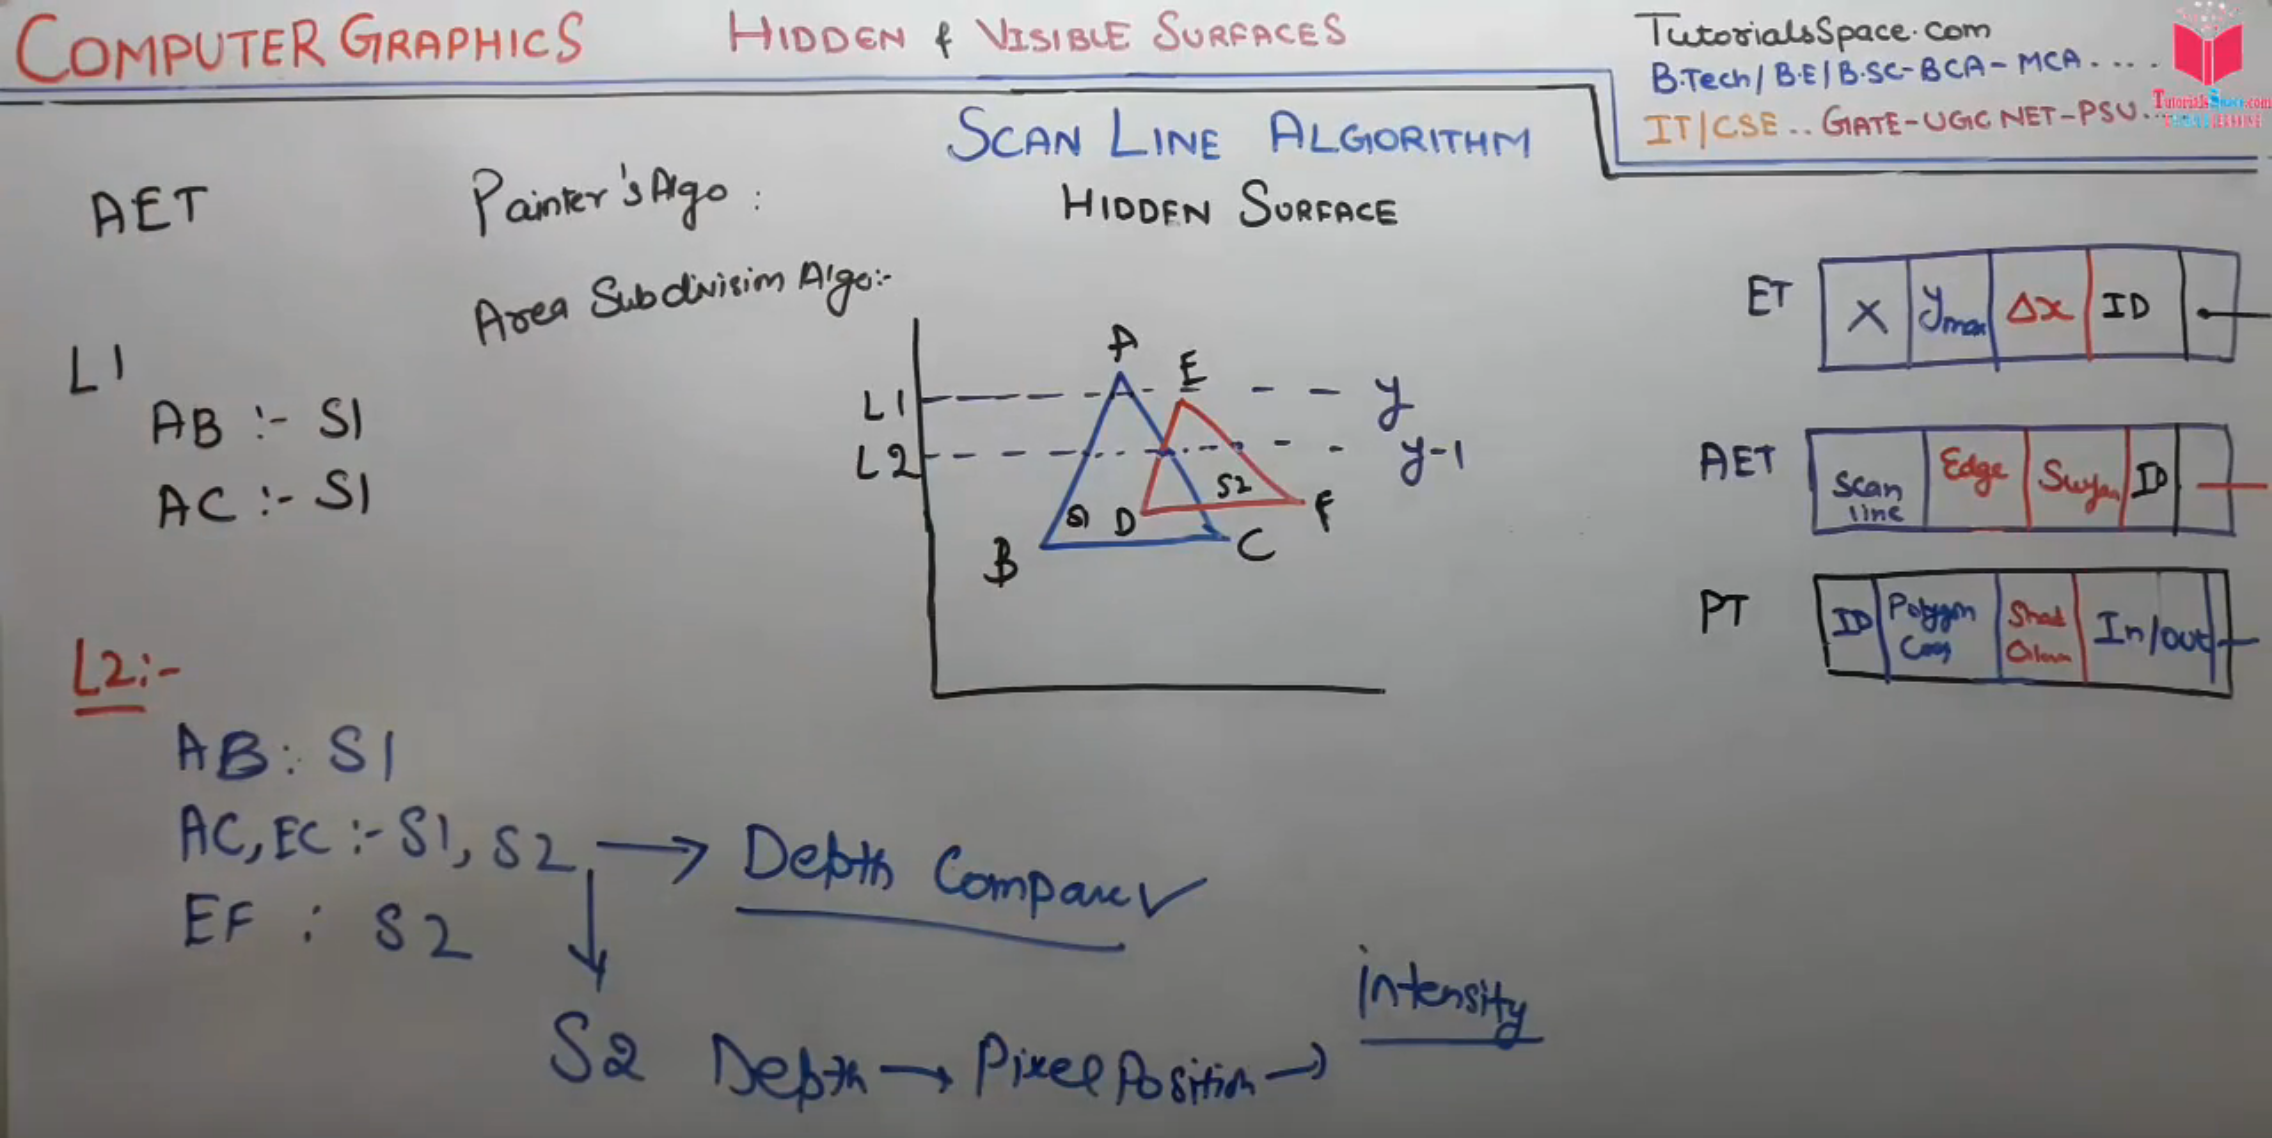 COMPUTER GRAPHICS
HIDDEN & VISIBLE SURFACES
TutorialsSpace.com
B.Tech/B.E/B.SC-BCA-MCA....
IT/CSE.. GATE-UGC NET-PSU...
TutorialsSpace.com
SCAN LINE ALGORITHM
HIDDEN SURFACE
AET
Painter's Algo :
Area Subdivision Algo:-
L1
AB :- S1
AC :- S1
L2:-
AB: S1
AC, EC :- S1, S2 → Depth Compare ✓
EF : S2
S2 Depth → Pixel Position →
intensity
A
E
L1
y
L2
y-1
S1
D
S2
F
B
C
ET
X
ymax
Δx
ID
AET
Scan line
Edge
ID
PT
ID
Polygon
In/out